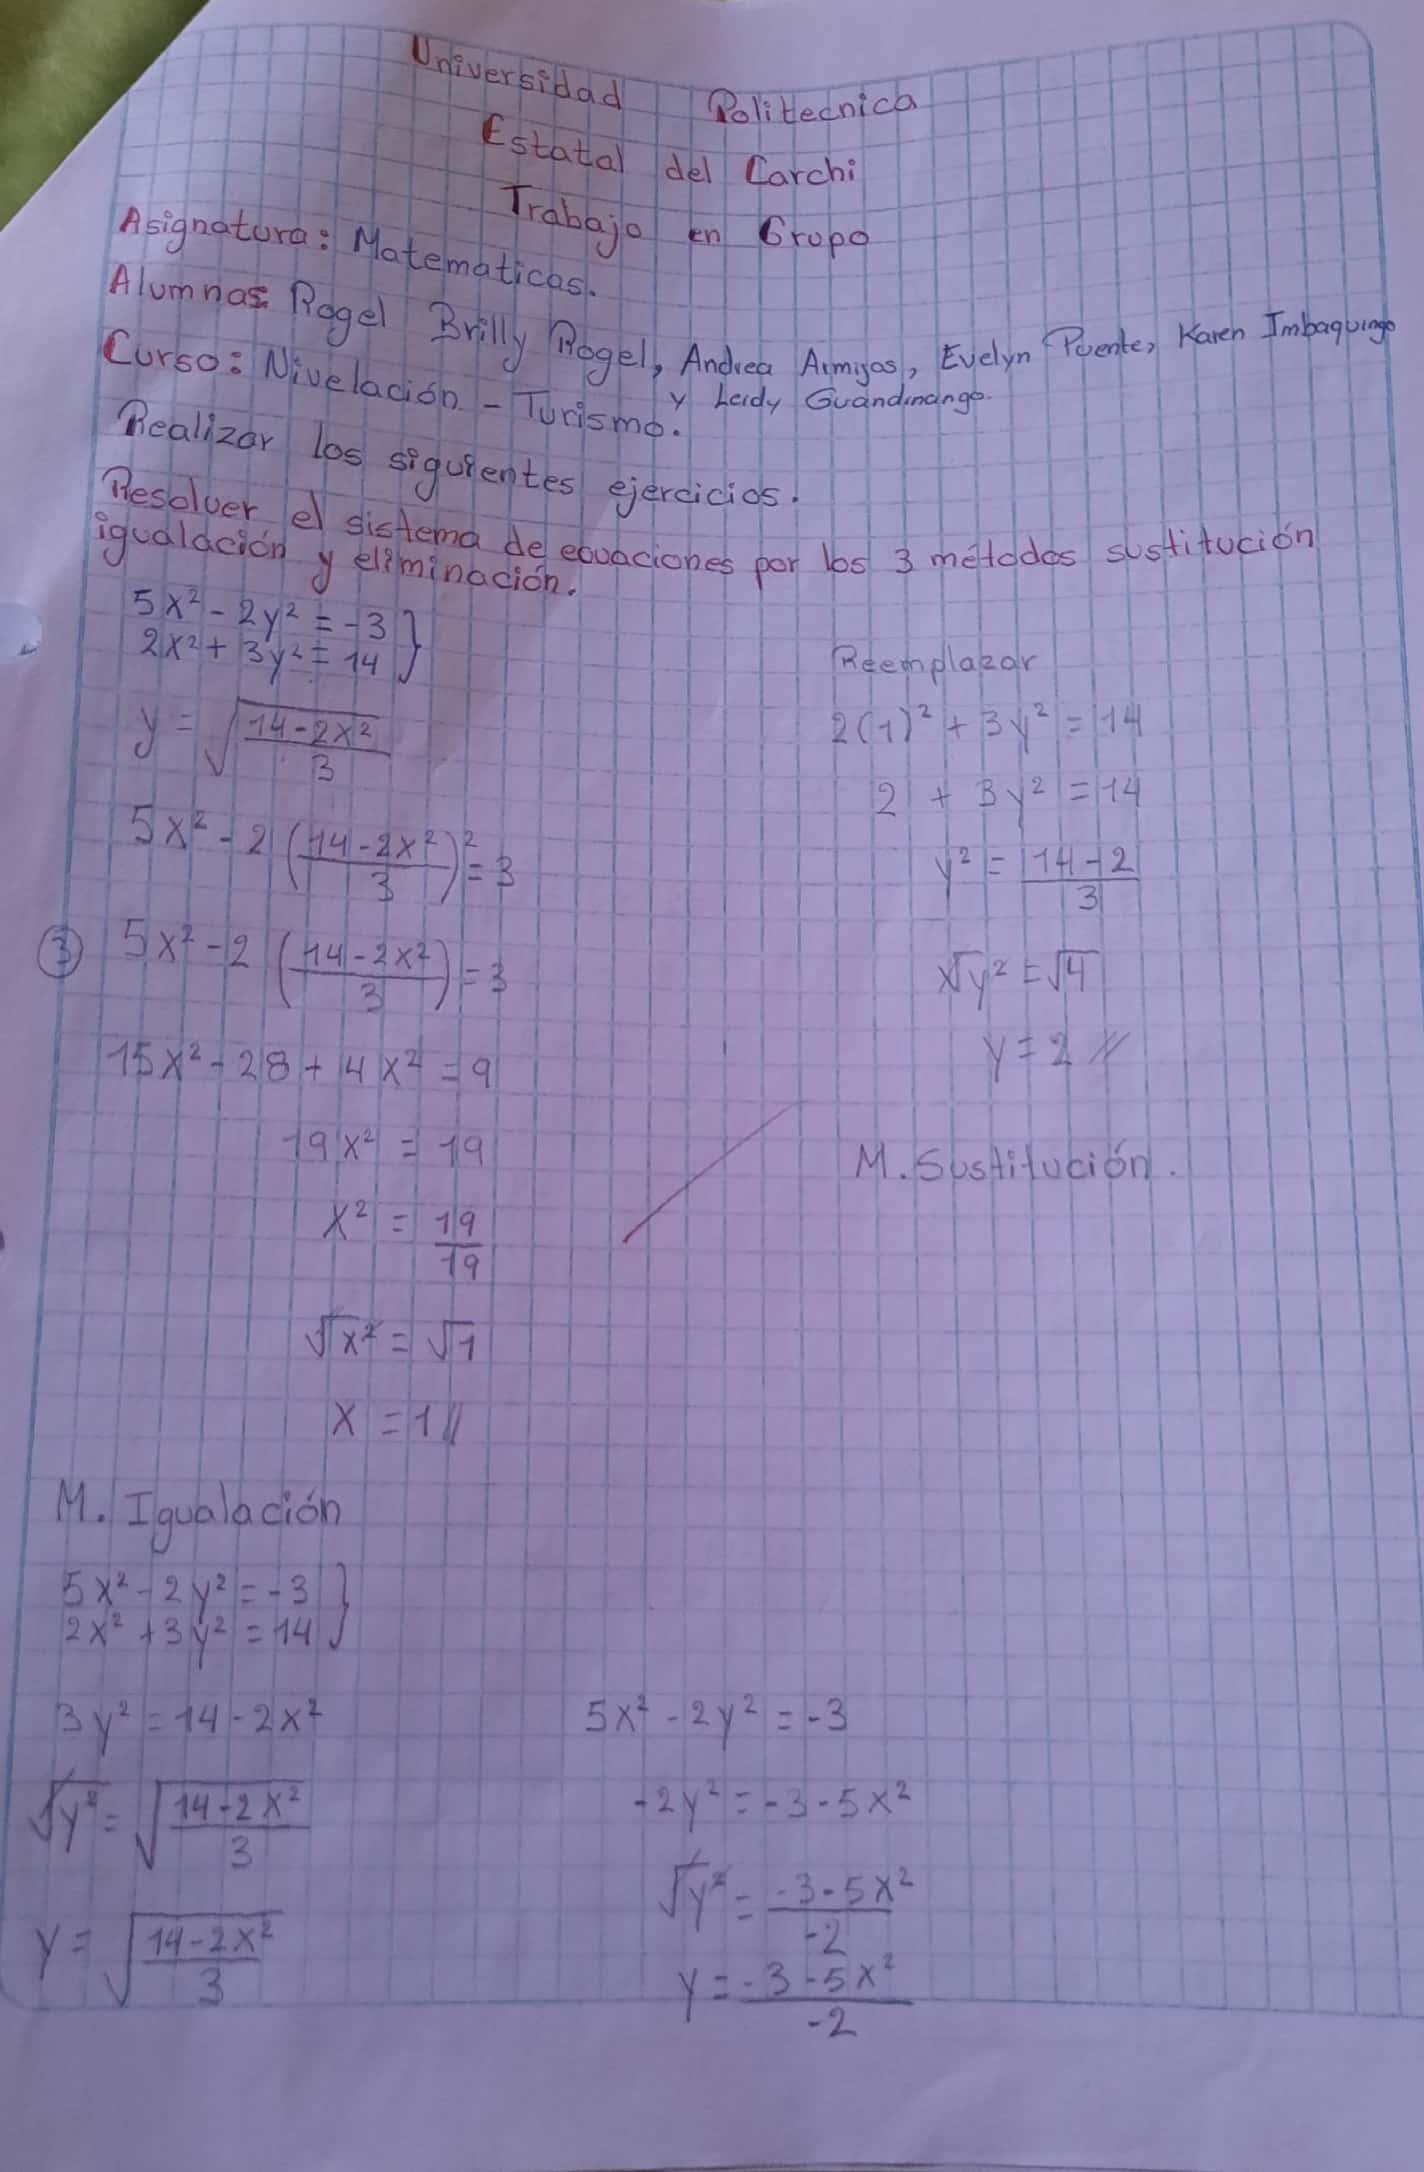 Universidad Politecnica
Estatal del Carchi
Trabajo en Grupo
Asignatura: Matematicas.
Alumnas: Rogel Brilly Rogel, Andrea Armijos, Evelyn Puente, Karen Imbaquingo
y Leidy Guandinango.
Curso: Nivelación - Turismo.
Realizar los siguientes ejercicios.
Resolver el sistema de ecuaciones por los 3 métodos sustitución
igualación y eliminación.
5x² - 2y² = -3 }
2x² + 3y² = 14
y = √((14-2x²)/3)
5x² - 2((14-2x²)/3)² = 3
③ 5x² - 2((14-2x²)/3) = 3
15x² - 28 + 4x² = 9
19x² = 19
x² = 19/19
√x² = √1
x = 1 //
Reemplazar
2(1)² + 3y² = 14
2 + 3y² = 14
y² = (14-2)/3
√y² = √4
y = 2 //
M. Sustitución.
M. Igualación
5x² - 2y² = -3 }
2x² + 3y² = 14
3y² = 14 - 2x²
√y² = √((14-2x²)/3)
y = √((14-2x²)/3)
5x² - 2y² = -3
-2y² = -3 - 5x²
√y² = (-3-5x²)/-2
y = (-3-5x²)/-2